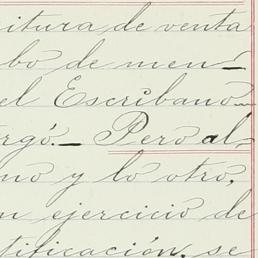 itura de venta
bo de men-
el Escribano
rgó.- Pero al
no y lo otro,
n ejercicio de
tificación, se